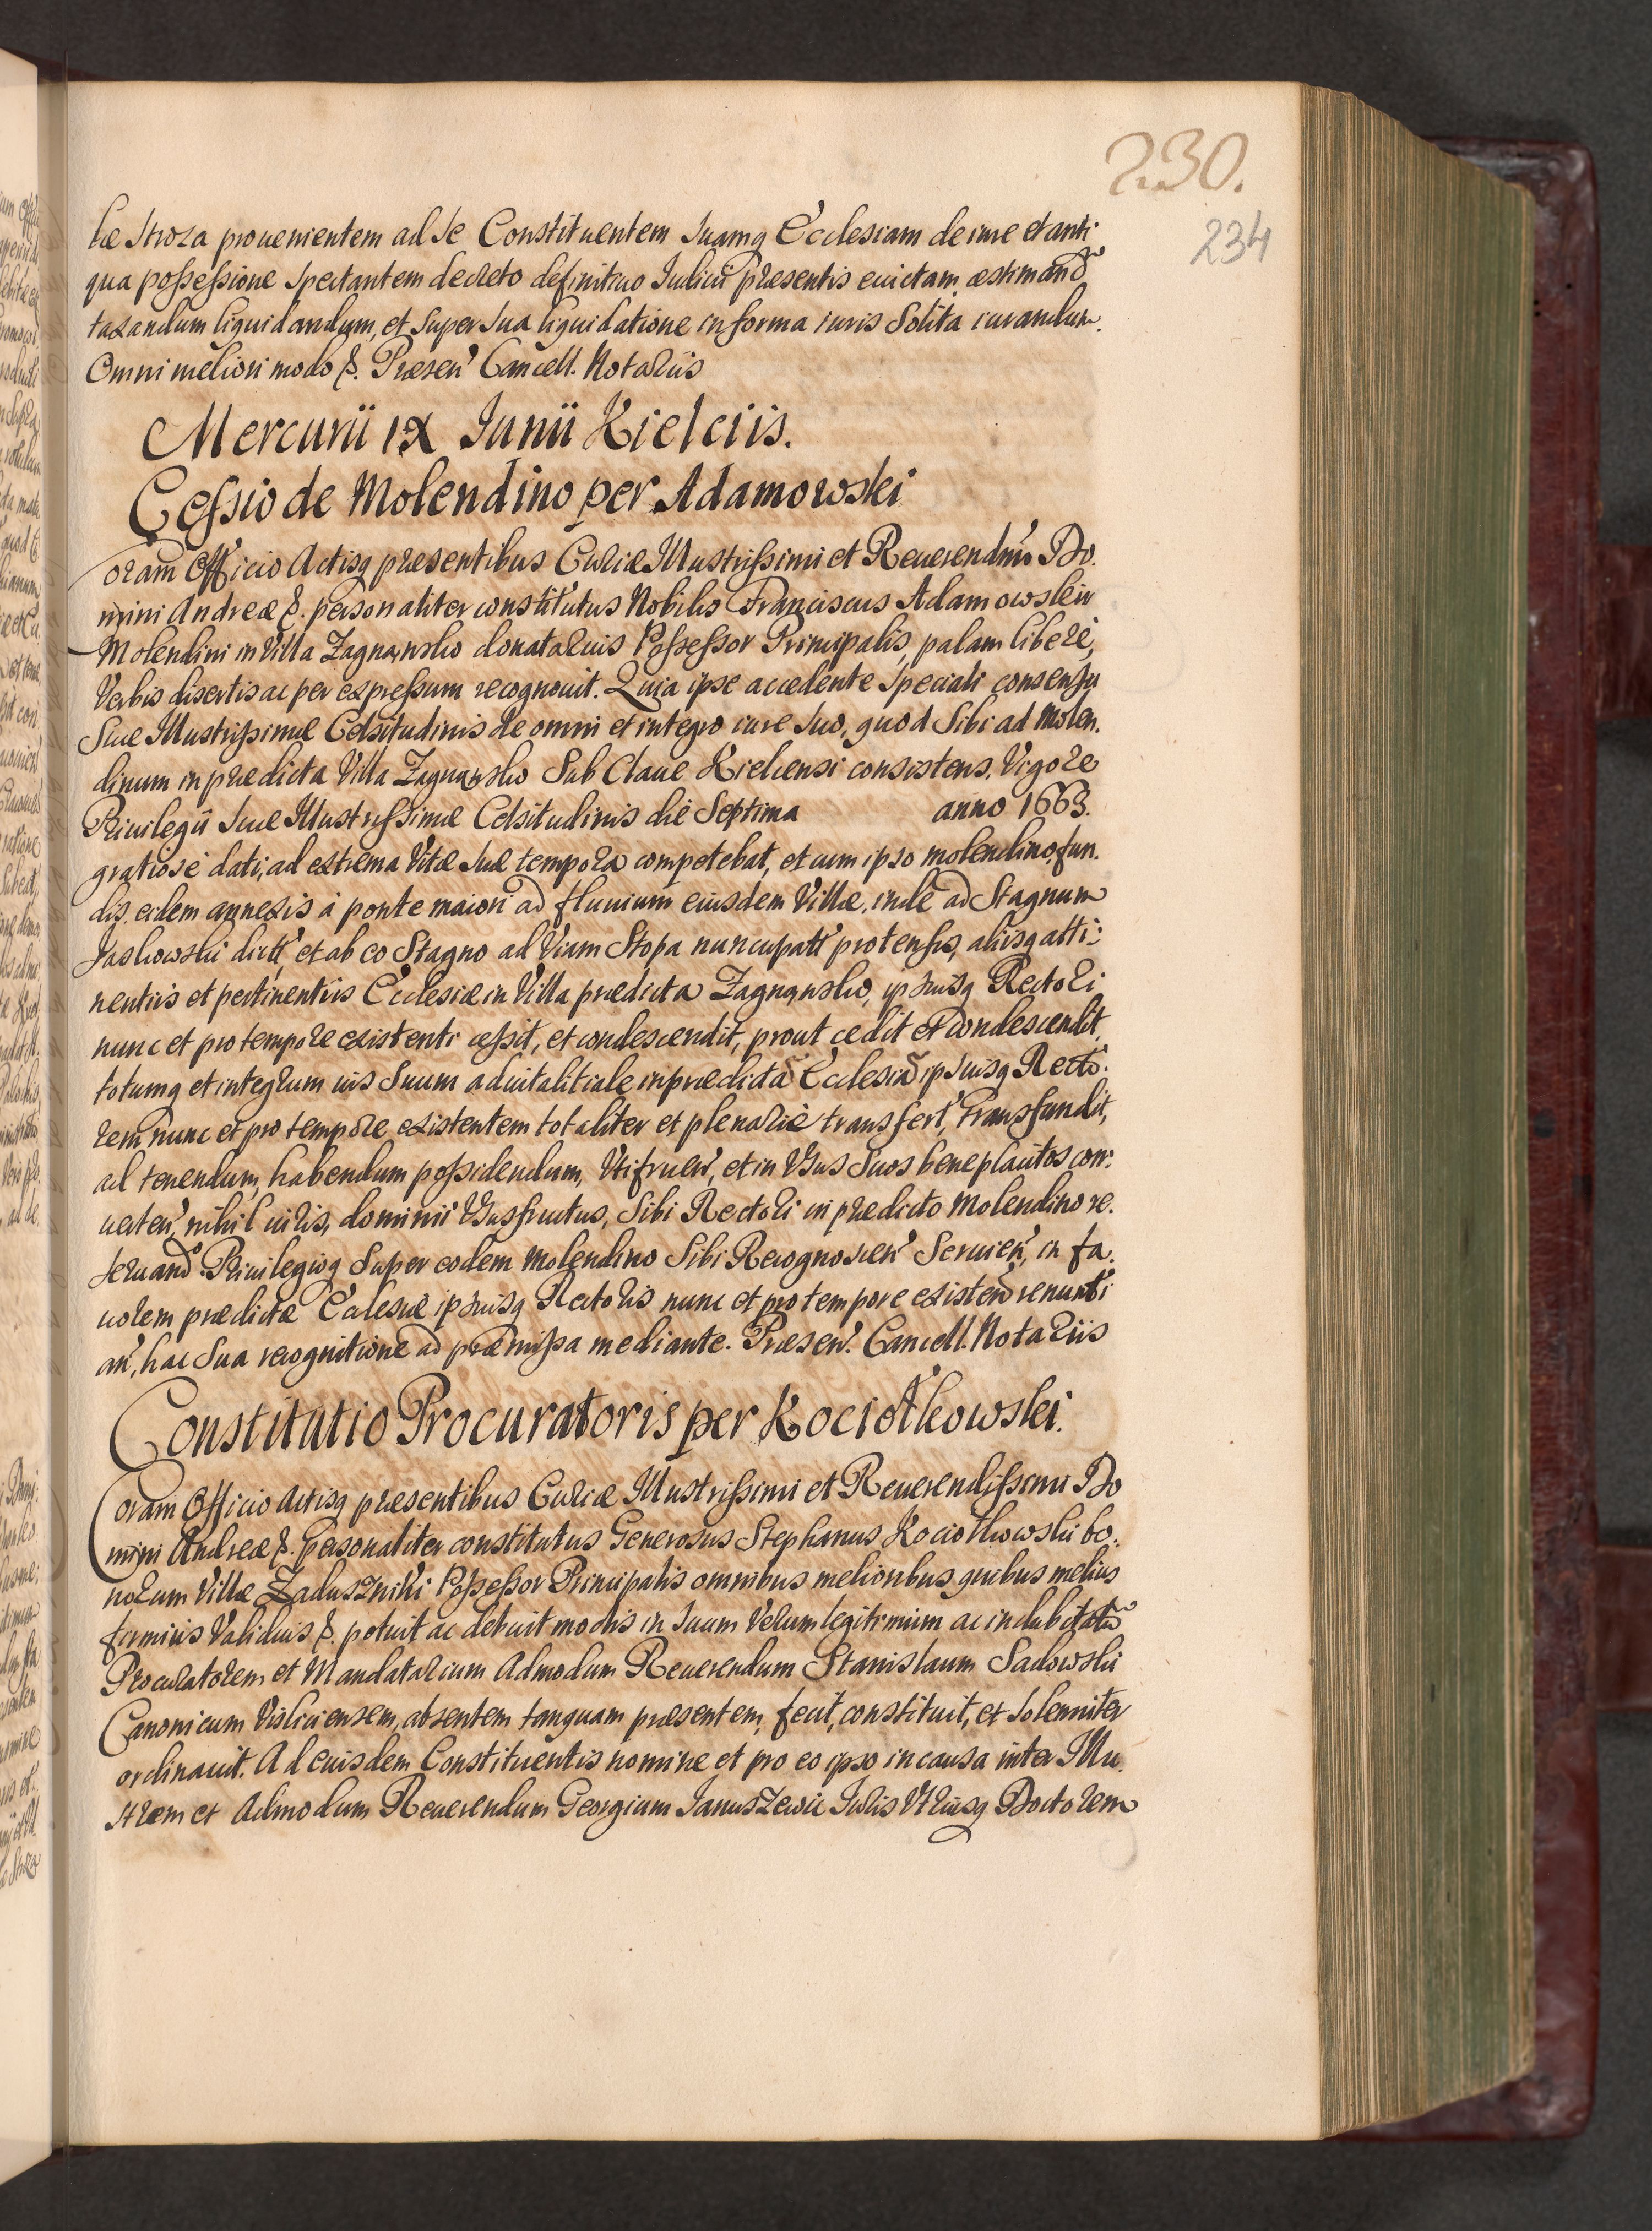 230.
234
læ Stroza prouenientem ad se Constituentem suamq Ecclesiam de iure et anti
qua possessione spectantem decreto definitiuo Iudicii præsentis euictam, æstimand
taxandum liquidandum, et super sua liquidatione in forma iuris solita iurandum.
Omni meliori modo &. Præsen Cancell. Notariis
Mercurii IX Iunii Kielciis.
Cessio de Molendino per Adamowski
Coram Officio Actisq præsentibus Curiæ Illustrissimi et Reuerendmi Do.
mini Andreæ &. personaliter constitutus Nobilis Franciscus Adamowskiw
Molendini in Villa Zagnansko donatarius Possessor Principalis, palam liberè,
Verbis disertis ac per expressum recognouit. Quia ipse accedente speciali consensu
Suæ Illustrissimæ Celsitudinis de omni et integro iure suo, quod Sibi ad Molen.
dinum in prædicta Villa Zagnansko Sub Claue Kielcensi consistens, Vigore
Priuilegii suæ Illustrissimæ Celsitudinis die Septima anno 1663.
gratiosè dati, ad extrema Vitæ suæ tempora competebat, et cum ipso molendino, fun.
dis, eidem annexis à ponte maiori ad fluuium eiusdem Villæ, inde ad Stagnum
Jaskowski dictt, et ab eo Stagno ad Viam Stopa nuncupatt protensis, aliisq atti:
nentiis et pertinentiis Ecclesiæ in Villa prædicta Zagnansko, ipsiusq Rectori
nunc et pro tempore existenti cessit, et condescendit, prout cedit et condescendit,
totumq et integrum ius Suum aduitalitiale in prædictā Ecclesiā ipsiusq Recto:
rem nunc et pro tempore existentem totaliter et plenariè transfert, transfundit,
ad tenendum, habendum possidendum, Vtifruen, et in Vsus Suos beneplacitos con:
uerten, nihil iuris, dominii Vsusfructus, Sibi Rectori in prædicto Molendino re.
seruand. Priuilegioq Super eodem Molendino Sibi Recognoscen Seruien, in fa.
uorem prædictæ Ecclesiæ ipsiusq Rectoris nunc et pro tempore existen renunti
an, hac Sua recognitione ad præmissa mediante. Præsen. Cancell. Notariis
Constitutio Procuratoris per Kociołkowski.
Coram Officio Actisq præsentibus Curiæ Illustrissimi et Reuerendissimi Do
mini Andreæ &. Personaliter constitutus Generosus Stephanus Kociołkowski bo.
norum Villæ Zaduszniki Possessor Principalis omnibus melioribus, quibus melius
firmius Validius &. potuit ac debuit modis in suum Verum legitimum ac indubitatū
Procuratorem et Mandatarium Admodum Reuerendum Stanislaum Sadowski
Canonicum Visliciensem, absentem tanquam præsentem, fecit, constituit, et solenniter
ordinauit. Ad eiusdem Constituentis nomine et pro eo ipso in causa inter Illu.
strem et Admodum Reuerendum Georgium Januszewic Iuris Vtriusq Doctorem